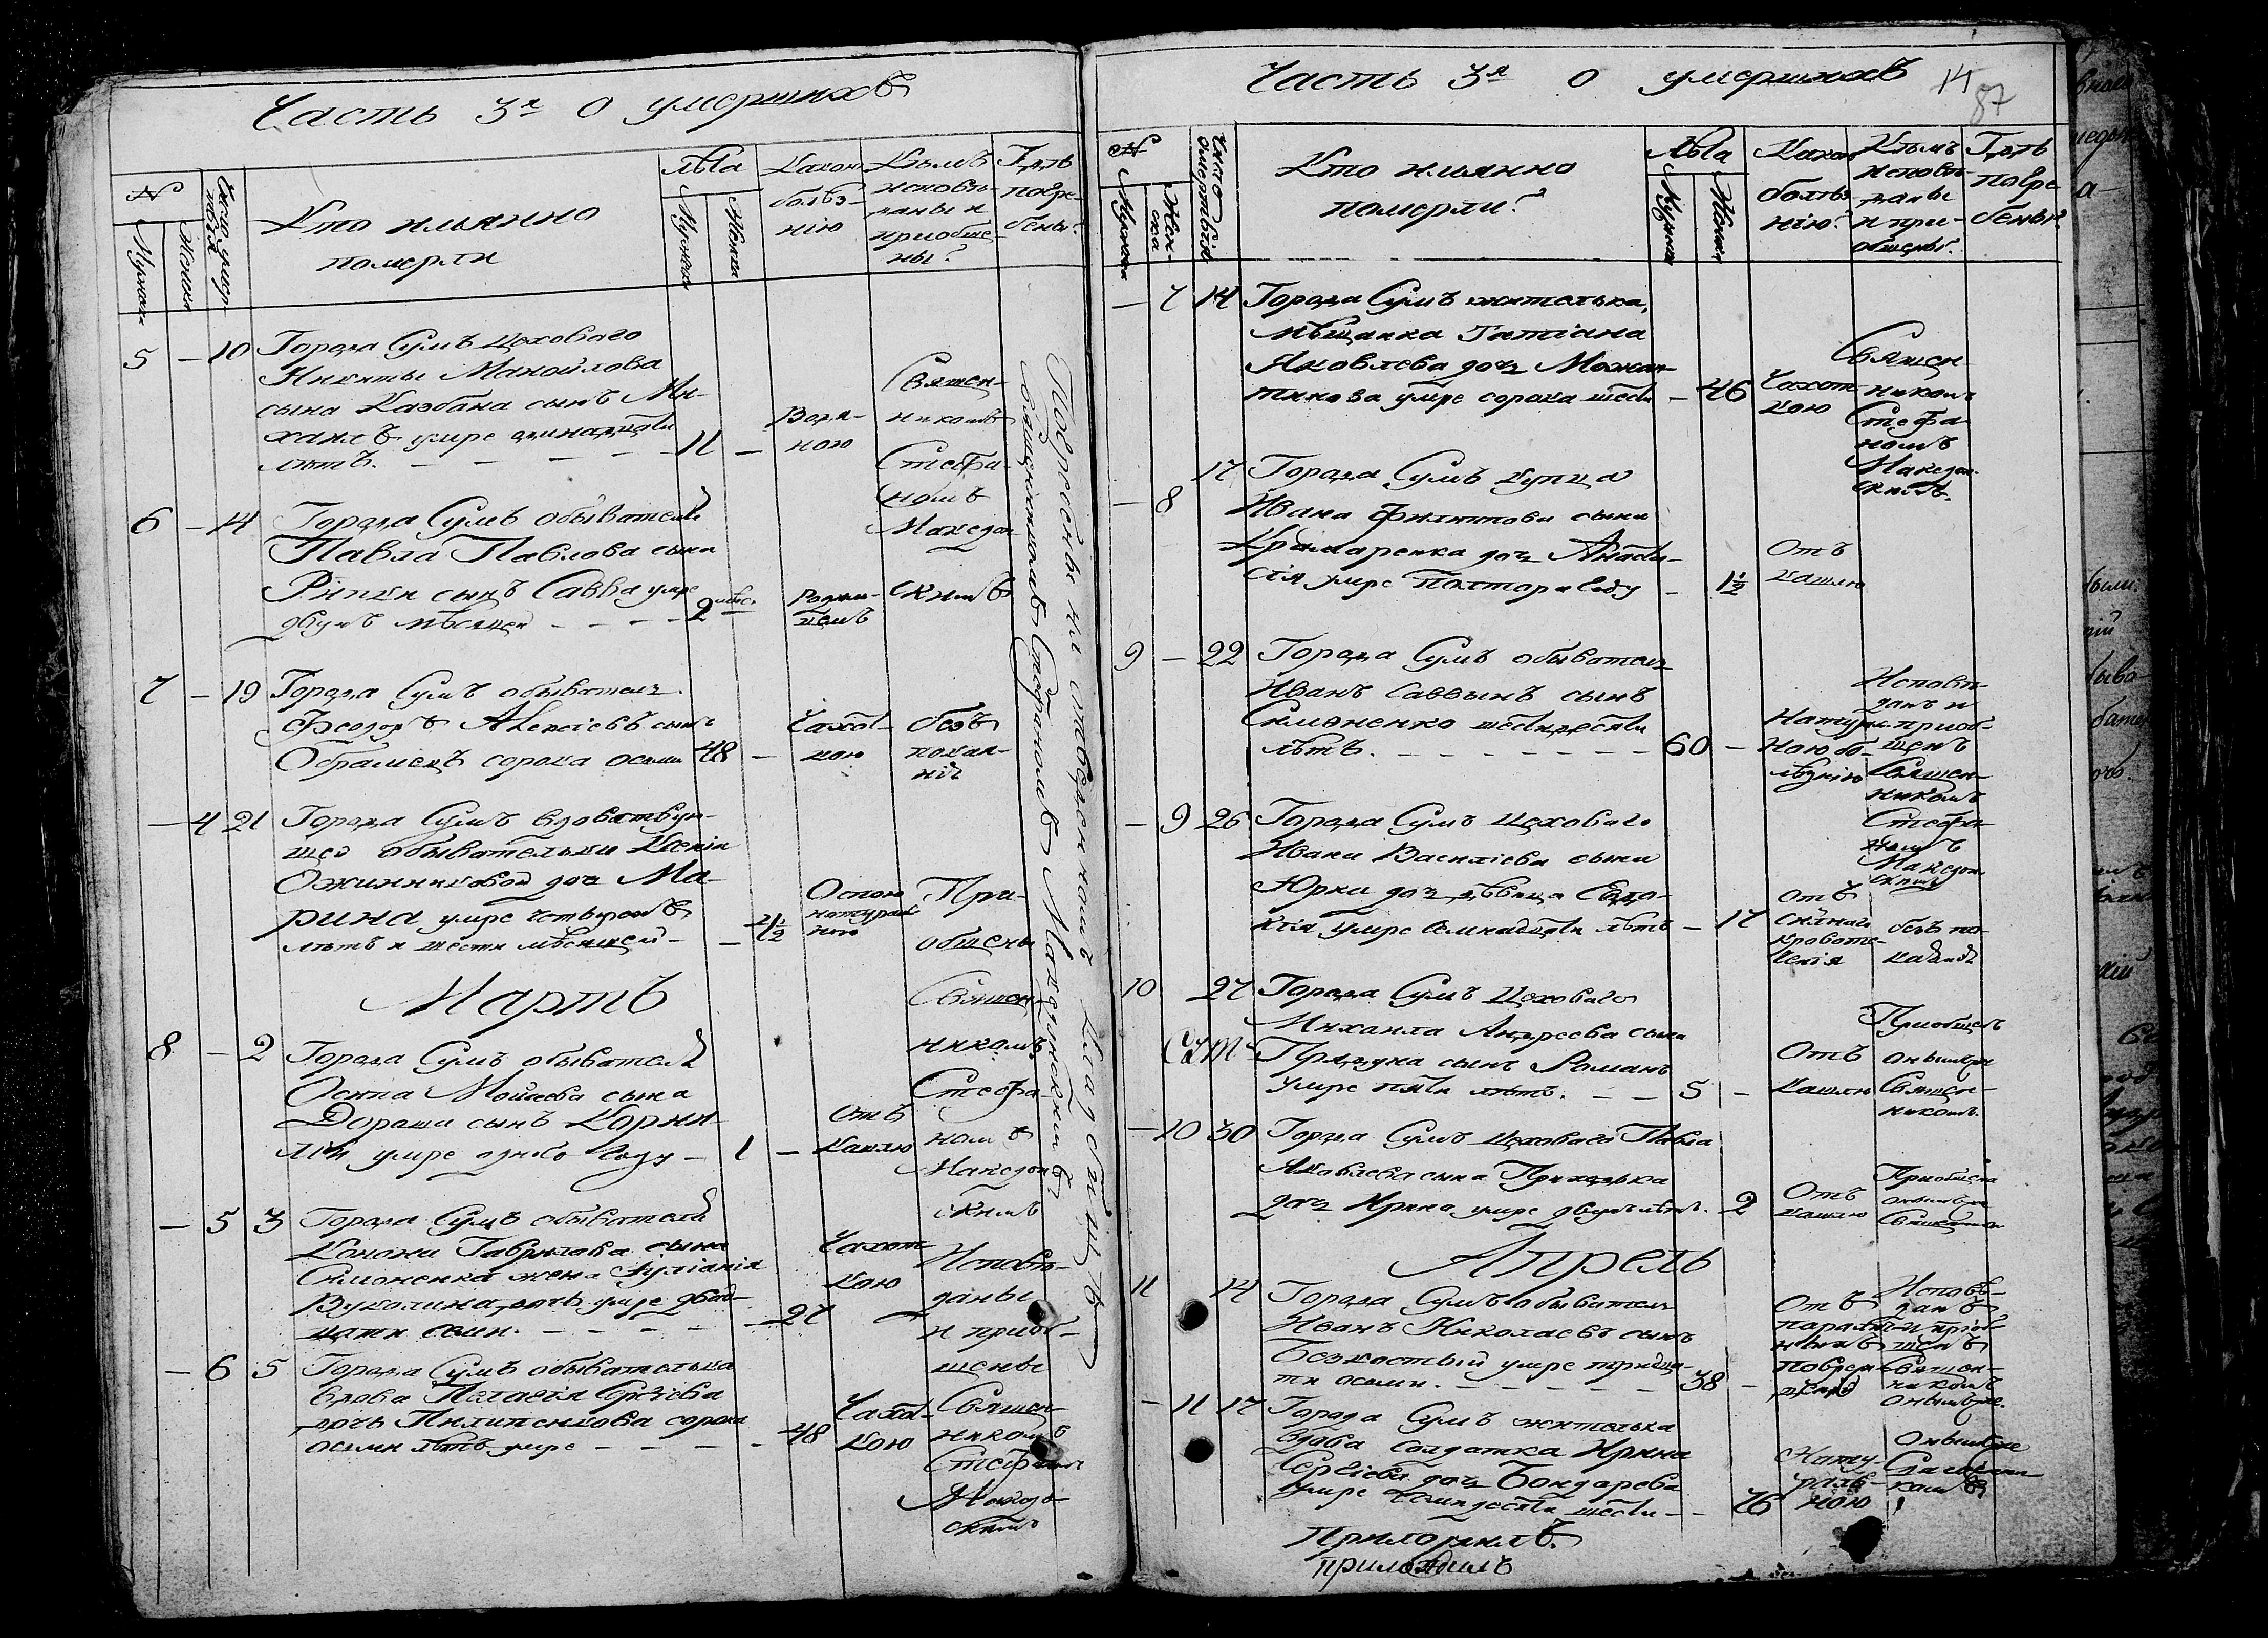 Часть 3я о умершихъ
№
Мужска
Женска
Кто именно
померли
лѣта
Мужска
Женска
Какою
болѣз-
нію
Кѣмъ
исповѣ-
даны и
приобще-
ны?
Гдѣ
погре-
бены?
5 – 10 Города Сумъ цеховаго
Никиты Манойлова
сына Казбана сынъ Ми-
хаилъ умре одинадцати
лѣтъ. – – – – – 11 –
Водя-
ною
Священ-
никомъ
Стефа-
номъ
Македон-
скимъ
6 – 14 Города Сумъ обывателя
Павла Павлова сына
сынъ Савва умре
двухъ мѣсяцей – – – – 2 мѣс.
Родим-
цемъ
7 – 19 Города Сумъ обыватель
Феодоръ Алексіевъ сынъ
сорока осьми 48 –
Чахот-
кою
безъ
покая-
нія
– 4 21 Города Сумъ вдовствую-
щей обывательки Ксеніи
Ожинниковой дочь Ма-
рина умре четырехъ
лѣтъ и шести мѣсяцей – – 4½
Оспою
натураль
ною
При-
общены
Священ
никомъ
Стефа-
номъ
Македон
скимъ
Мартъ
8 – 2 Города Сумъ обывателя
Осипа Мойсеева сына
Дораша сынъ Корни-
лій умре одного году – 1 –
отъ
кашлю
– 5 3 Города Сумъ обывателя
Конона Гаврилова сына
Симоненка жена Іуліанія
Вуколина дочь умре двад-
цати семи. – – – – 27
Чахот
кою
Исповѣ-
даны
и приоб-
щены
Священ-
никомъ
Стефаном
Македо-
скимъ
– 6 5 Города Сумъ обывателька
вдова Пелагія Сергіева
дочь Пилипенкова сорока
осьми лѣтъ умре – – – – 48
Чахот-
кою
Погребены на отведенномъ кладбищѣ
Священникомъ Стефаномъ Македонскимъ
Часть 3я о умершихъ 14
87
№
Мужска
Жен-
ска
Число
смертвій
Кто именно
померли?
лѣта
Мужска
Женска
Какою
болѣз
нію?
Кѣмъ
исповѣ-
даны
и при-
общены?
Гдѣ
погре
бены?
– 7 14 Города Сумъ жителька,
мѣщанка Татіана
Яковлева дочь
умре сорока шести – 46
Чахот-
кою
Священ-
никомъ
Стефа
номъ
Македон-
скимъ.
– 8 17 Города Сумъ купца
Ивана Филиппова сына
Крамаренка дочь Анаста-
сія умре полтора году – 1½
Отъ
кашлю
9 – 22 Города Сумъ обыватель
Иванъ Саввынъ сынъ
Симоненко шестидесяти
лѣтъ. – – – – – – – 60 –
Натураль-
ною бо-
лѣзнію
Исповѣ-
данъ и
приоб-
щенъ
Священ-
никомъ
Стефа
номъ
Македон.
скимъ
– 9 26 Города Сумъ цеховаго
Ивана Василіева сына
Юрка дочь дѣвица Евдо-
кія умре семнадцати лѣтъ – 17
отъ
силнаго
кровоте-
ченія
безъ по-
каянія
10 27 Города Сумъ цеховаго
Михаила Андреева сына
сынъ Романъ
умре пяти лѣтъ. – – 5 –
Отъ
кашлю
Приобщенъ
онымже
Священ-
никомъ
– 10 30 Города Сумъ цеховаго Павла
Яковлева сына Приходька
дочь Ирина умре двухъ лѣтъ. 2
Отъ
кашлю
Приобщена
онымъже
Священником
Апрель
11 14 Города Сумъ обыватель
Иванъ Николаевъ сынъ
Безкостый умре тридца-
ти осьми. – – – – – 38 –
Отъ
Исповѣ-
данъ
и приоб
щенъ
Священ-
никомъ
онымже.
– 11 17 Города Сумъ жителька
вдова солдатка Ирина
Сергіева дочь Бондарева
умре семидесяти шести – – 76
Нату-
раль-
ною
Онымже
Священни
комъ
приложилъ